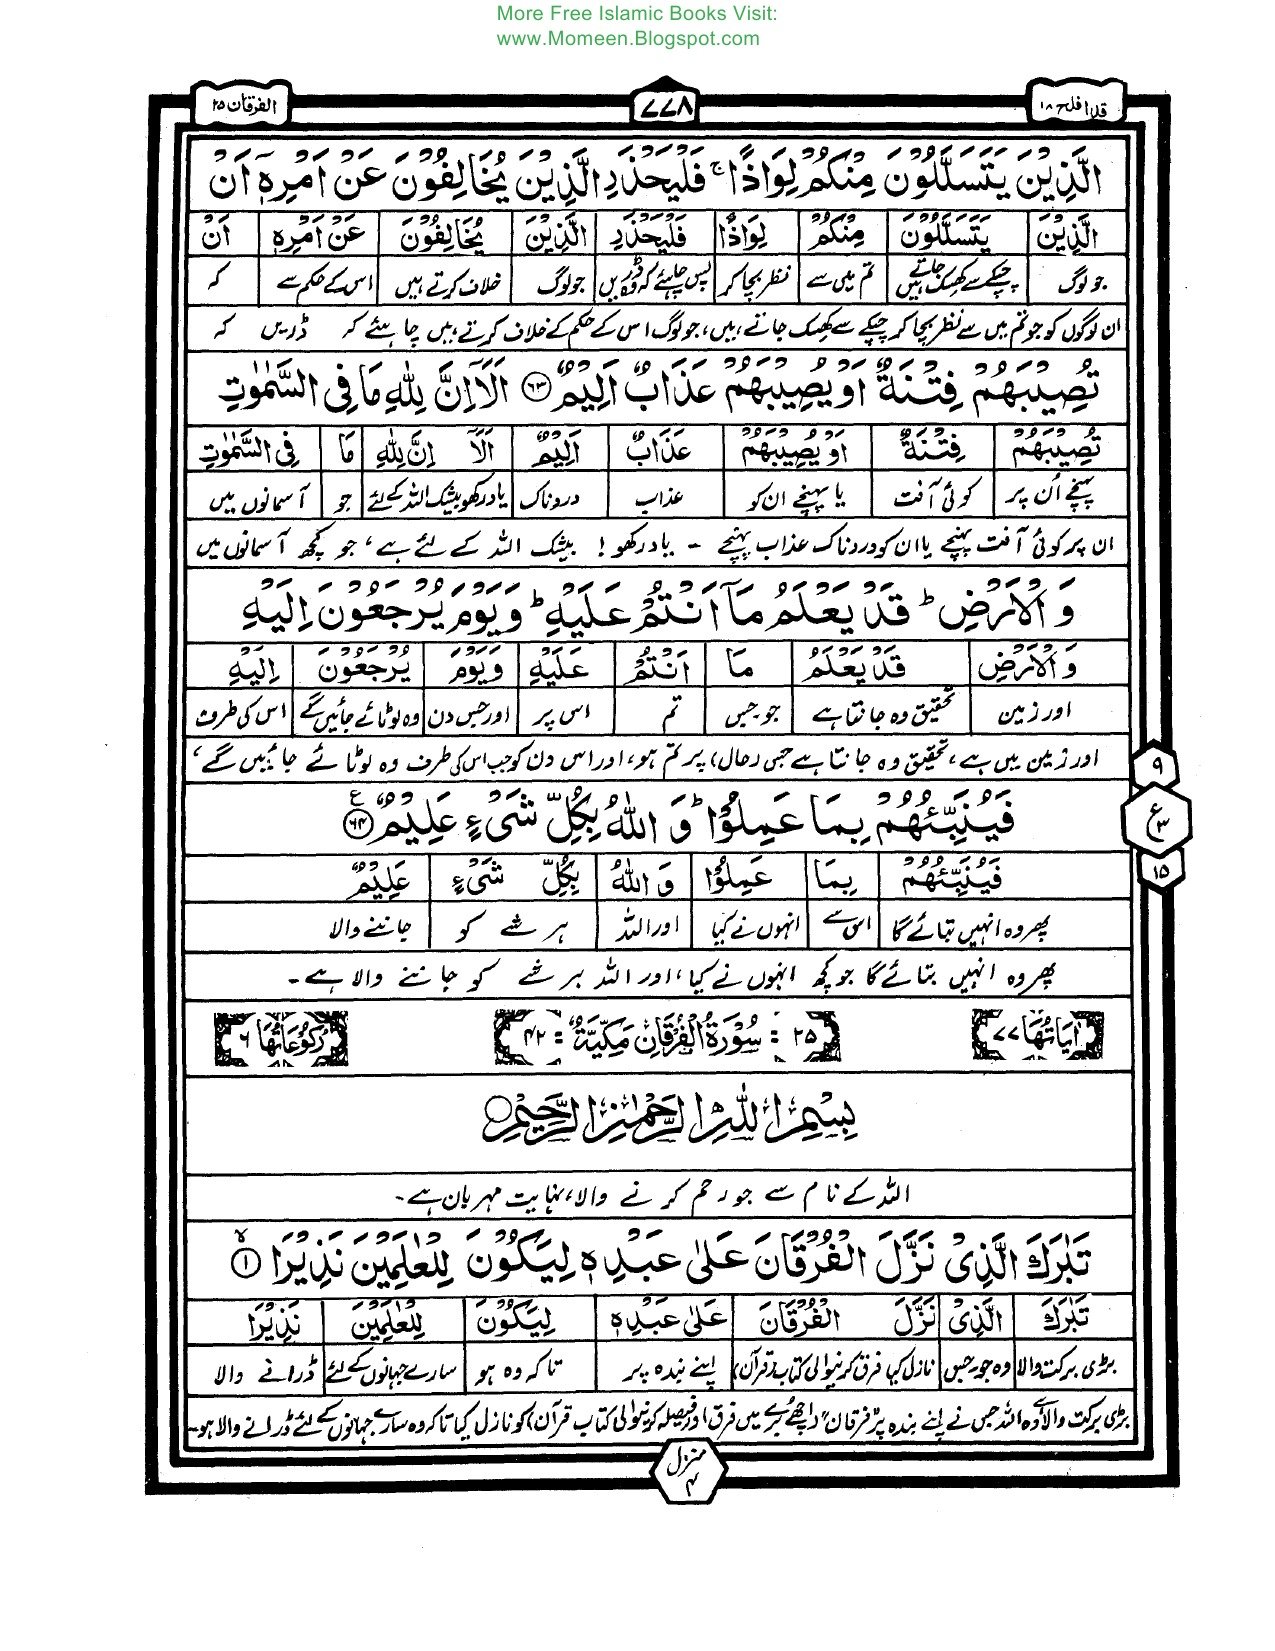 More Free Islamic Books Visit:
www.Momeen.Blogspot.com
قد افلح ۱۸
۷۷۸
الفرقان ۲۵
الَّذِیۡنَ یَتَسَلَّلُوۡنَ مِنۡکُمۡ لِوَاذًا ۚ فَلۡیَحۡذَرِ الَّذِیۡنَ یُخَالِفُوۡنَ عَنۡ اَمۡرِہٖۤ اَنۡ
الَّذِیۡنَ یَتَسَلَّلُوۡنَ مِنۡکُمۡ لِوَاذًا فَلۡیَحۡذَرِ الَّذِیۡنَ یُخَالِفُوۡنَ عَنۡ اَمۡرِہٖ اَنۡ
جو لوگ چپکے سے کھسک جاتے ہیں تم میں سے نظر بچا کر پس چاہئے کہ وہ ڈریں جو لوگ خلاف کرتے ہیں اس کے حکم سے کہ
ان لوگوں کو جو تم میں سے نظر بچا کر چپکے سے کھسک جاتے ہیں، جو لوگ اس کے حکم کے خلاف کرتے ہیں چاہئے کہ ڈریں کہ
تُصِیۡبَہُمۡ فِتۡنَۃٌ اَوۡ یُصِیۡبَہُمۡ عَذَابٌ اَلِیۡمٌ ﴿۶۳﴾ اَلَاۤ اِنَّ لِلّٰہِ مَا فِی السَّمٰوٰتِ
تُصِیۡبَہُمۡ فِتۡنَۃٌ اَوۡ یُصِیۡبَہُمۡ عَذَابٌ اَلِیۡمٌ اَلَاۤ اِنَّ لِلّٰہِ مَا فِی السَّمٰوٰتِ
پہنچے اُن پر کوئی آفت یا پہنچے ان کو عذاب دردناک یاد رکھو بیشک اللہ کے لئے جو آسمانوں میں
ان پر کوئی آفت پہنچے یا ان کو دردناک عذاب پہنچے - یاد رکھو! بیشک اللہ کے لئے ہے، جو کچھ آسمانوں میں
وَ الۡاَرۡضِ ؕ قَدۡ یَعۡلَمُ مَاۤ اَنۡتُمۡ عَلَیۡہِ ؕ وَ یَوۡمَ یُرۡجَعُوۡنَ اِلَیۡہِ
وَ الۡاَرۡضِ قَدۡ یَعۡلَمُ مَاۤ اَنۡتُمۡ عَلَیۡہِ وَ یَوۡمَ یُرۡجَعُوۡنَ اِلَیۡہِ
اور زمین تحقیق وہ جانتا ہے جو جس تم اس پر اور جس دن وہ لوٹائے جائیں گے اس کی طرف
اور زمین میں ہے، تحقیق وہ جانتا ہے جس (حال) پر تم ہو، اور اس دن کو جب اس کی طرف وہ لوٹائے جائیں گے،
فَیُنَبِّئُہُمۡ بِمَا عَمِلُوۡا ؕ وَ اللّٰہُ بِکُلِّ شَیۡءٍ عَلِیۡمٌ ﴿۶۴﴾ ع
فَیُنَبِّئُہُمۡ بِمَا عَمِلُوۡا وَ اللّٰہُ بِکُلِّ شَیۡءٍ عَلِیۡمٌ
پھر وہ انہیں بتائے گا اس سے انہوں نے کیا اور اللہ ہر شے کو جاننے والا
پھر وہ انہیں بتائے گا جو کچھ انہوں نے کیا، اور اللہ ہر شے کو جاننے والا ہے۔
۹
ع ۳
۱۵
اٰیَاتُهَا ۷۷
۲۵ = سُوۡرَۃُ الۡفُرۡقَانِ مَکِّیَّۃٌ = ۴۲
رُکُوۡعَاتُهَا ۶
بِسۡمِ اللّٰہِ الرَّحۡمٰنِ الرَّحِیۡمِ
اللہ کے نام سے جو رحم کرنے والا، نہایت مہربان ہے۔
تَبٰرَکَ الَّذِیۡ نَزَّلَ الۡفُرۡقَانَ عَلٰی عَبۡدِہٖ لِیَکُوۡنَ لِلۡعٰلَمِیۡنَ نَذِیۡرَا ۙ﴿۱﴾
تَبٰرَکَ الَّذِیۡ نَزَّلَ الۡفُرۡقَانَ عَلٰی عَبۡدِہٖ لِیَکُوۡنَ لِلۡعٰلَمِیۡنَ نَذِیۡرَا
بڑی برکت والا وہ جو جس نازل کیا فرق کرنیوالی کتاب (قرآن) اپنے بندہ پر تاکہ وہ ہو سارے جہانوں کے لئے ڈرانے والا
بڑی برکت والا ہے وہ اللہ جس نے اپنے بندہ پر "فرقان" (اچھے بُرے میں فرق اور فیصلہ کرنیوالی کتاب قرآن) کو نازل کیا تاکہ وہ سارے جہانوں کے لئے ڈرانے والا ہو۔
منزل ۴